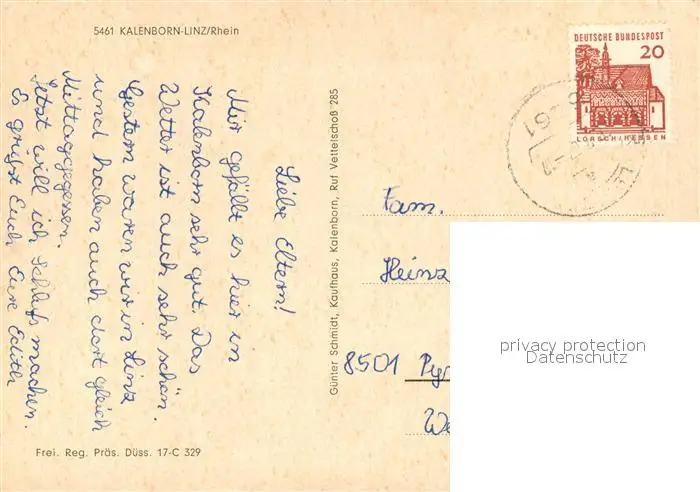 5461 KALENBORN-LINZ/Rhein
Liebe Eltern!
Mir gefällt es hier in
Kalenborn sehr gut. Das
Wetter ist auch sehr schön.
Gestern waren wir in Linz
und haben auch dort gleich
Mittaggegessen.
Jetzt will ich Schluß machen.
Es grüßt Euch Eure Edith
Frei. Reg. Präs. Düss. 17-C 329
Günter Schmidt, Kaufhaus, Kalenborn, Ruf Vettelschoß 285
DEUTSCHE BUNDESPOST
20
LORSCH/HESSEN
Fam.
Heinz
8501
We
privacy protection
Datenschutz